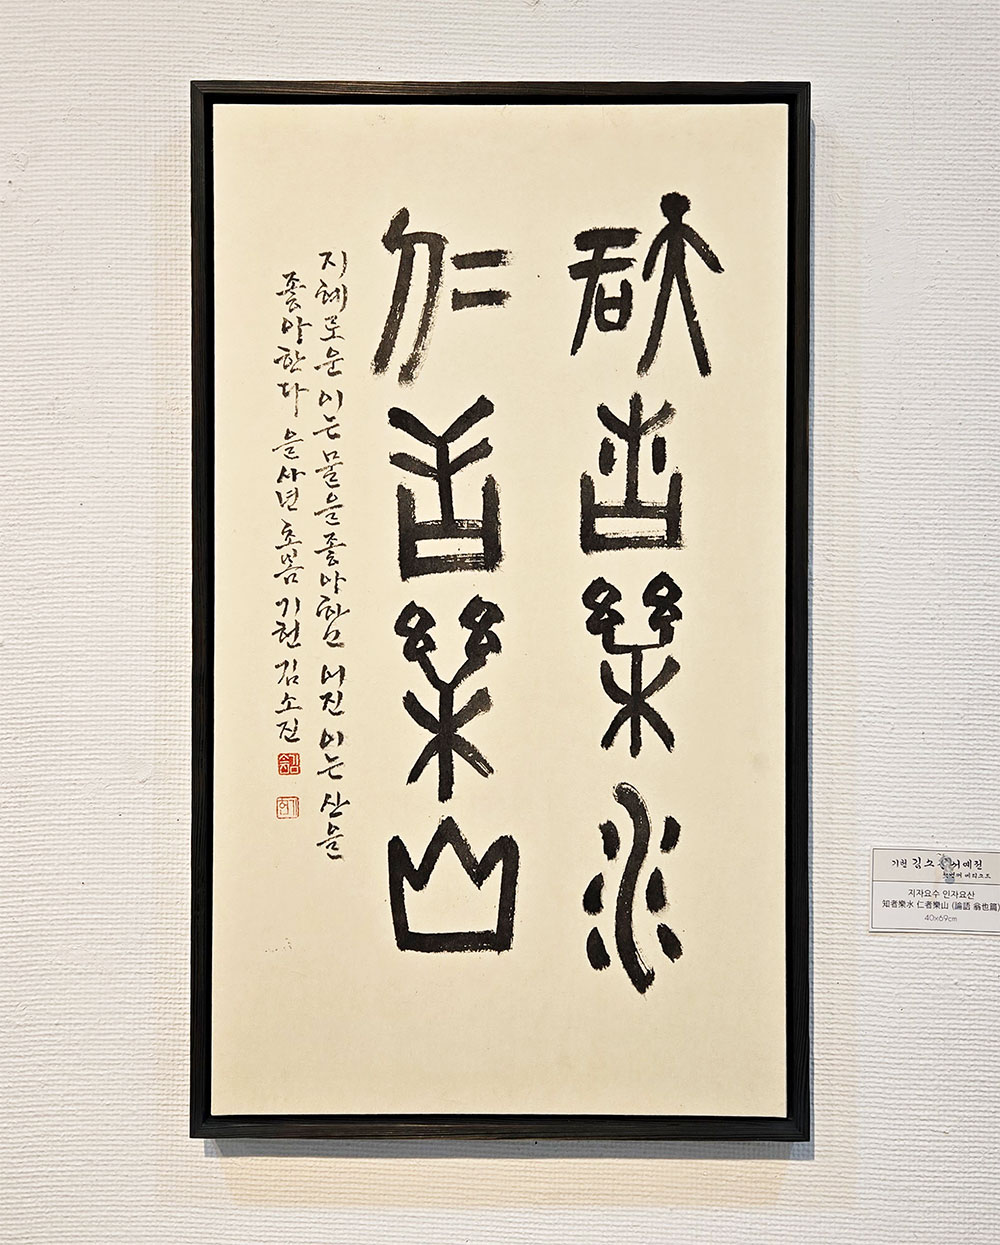 知者樂水
仁者樂山
지혜로운 이는 물을 좋아하고 어진 이는 산을
좋아한다 을사년 초봄 기헌 김소진
기헌 김소진 서예전
지자요수 인자요산
知者樂水 仁者樂山 (論語 翁也篇)
40×69cm